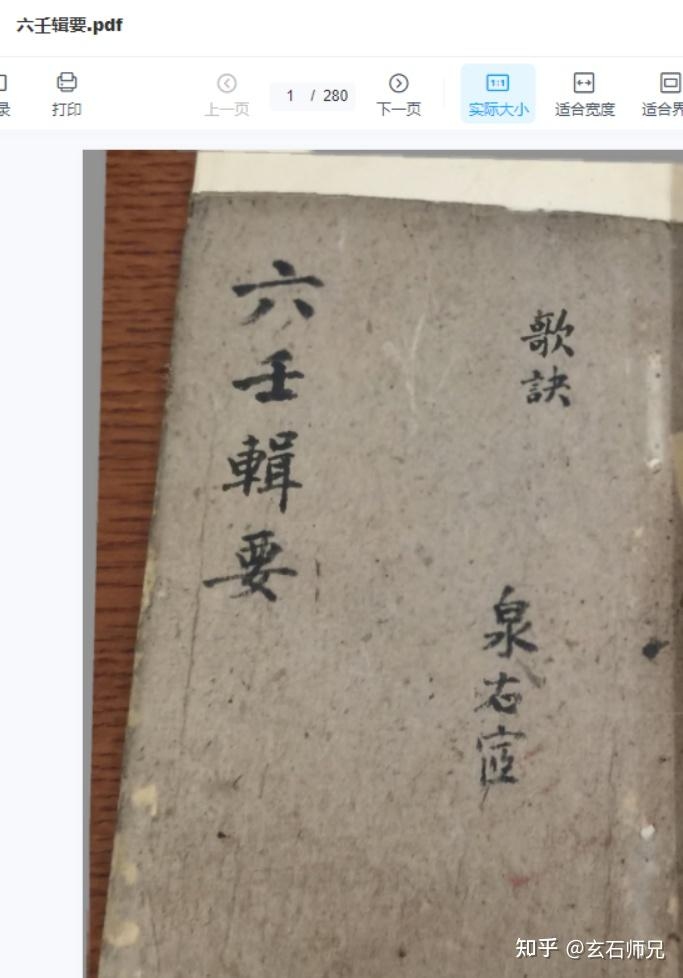 六壬辑要.pdf
录
打印
上一页
1 / 280
下一页
实际大小
适合宽度
适合界
歌訣
六壬輯要
知乎 @玄石师兄